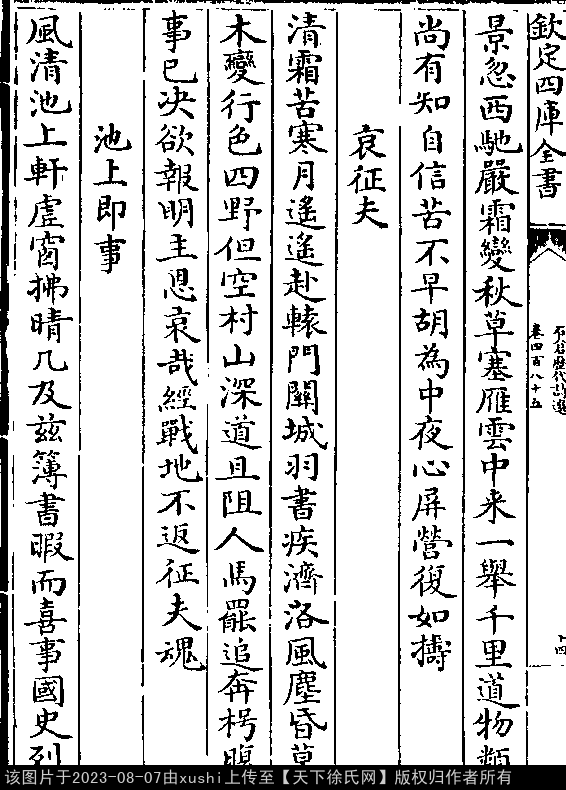 欽定四庫全書
石倉歴代詩選
卷四百八十五
十四
景忽西馳嚴霜變秋草塞雁雲中来一舉千里道物類
尚有知自信苦不早胡為中夜心屏營復如擣
哀征夫
清霜苦寒月遙遙赴轅門關城羽書疾濟洛風塵昏草
木變行色四野但空村山深道且阻人馬罷追奔枵腹
事已决欲報明主恩哀哉經戰地不返征夫魂
池上即事
風清池上軒虚窗拂晴几及兹簿書暇而喜事國史列
该图片于2023-08-07由xushi上传至【天下徐氏网】版权归作者所有